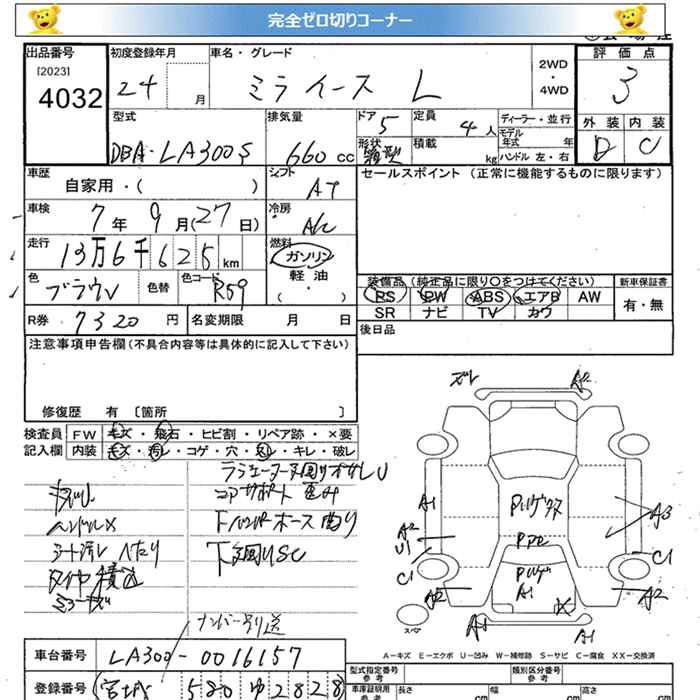 完全ゼロ切りコーナー
出品番号
[2023]
4032
初度登録年月
24 月
車名・グレード
ミライース L
2WD
・
4WD
評価点
3
外装 内装
D C
型式
DBA-LA300S
排気量
660 cc
ドア 5
形状
箱型
定員 4人
積載 kg
ディーラー・並行
モデル
年式 年
ハンドル 左・右
車歴
自家用・( )
シフト
AT
セールスポイント (正常に機能するものに限ります)
車検
7年 9月(27日)
冷房
AC
走行
13万6千625km
燃料
ガソリン
軽油
( ・ )
色
ブラウン
色替
色コード
R59
装備品 (純正品に限り○をつけてください)
PS PW ABS エアB AW
SR ナビ TV カワ
新車保証書
有・無
R券 7320 円
名変期限 月 日
後日品
注意事項申告欄(不具合内容等は具体的に記入して下さい)
修復歴 有 〔箇所 〕
検査員
記入欄
FW キズ・飛石・ヒビ割・リペア跡・×要
内装 キズ・汚レ・コゲ・穴・ヌレ・キレ・破レ
コアサポート 歪み
ハンドルス
シート汚レ ヘたり
下回りSC
タイヤ積込
ナンバー別送
ズレ
A2
A1
A2
U1
C1
A2
A3
C1
A2
A1
A1
A1
スペア
A-キズ E-エクボ U-凹み W-補修跡 S-サビ C-腐食 XX-交換済
車台番号
LA300-0016157
登録番号
宮崎 580 ゆ 2828
型式指定番号
参考
類別区分番号
参考
車庫証明用
参考
長さ cm
幅 cm
高さ cm